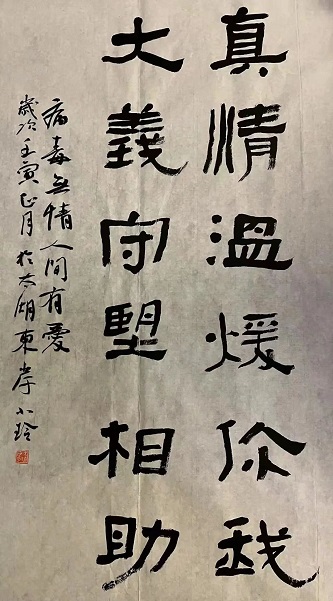 真情溫煖你我
大義守望相助
病毒無情人间有愛
歲次壬寅正月於太湖東岸小玲